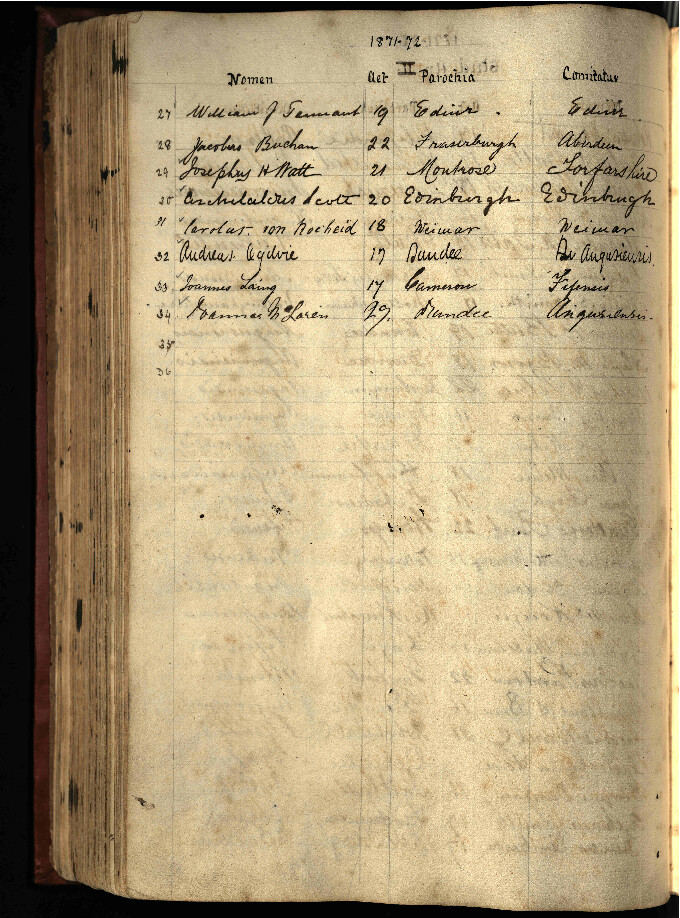 1871-72
II
Nomen Aet Parochia Comitatus
27 William J Tennant 19 Edinr. Edinr.
28 Jacobus Buchan 22 Fraserburgh Aberdeen
29 Josephus H Watt 21 Montrose Forfarshire
30 Archibaldus Scott 20 Edinburgh Edinburgh
31 Carolus von Rocheid 18 Weimar Weimar
32 Andreas Ogilvie 17 Dundee Angusiensis.
33 Joannes Laing 17 Cameron Fifensis
34 McLaren 29. Dundee Angusiensis.
35
36